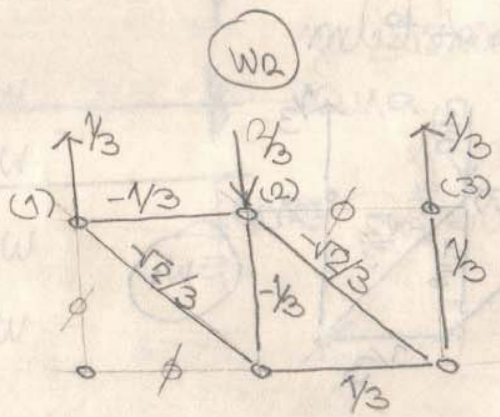 W2
1/3 2/3 1/3
(1) -1/3 (2) ∅ (3)
-√2/3 -1/3 -√2/3 1/3
∅
∅ 1/3